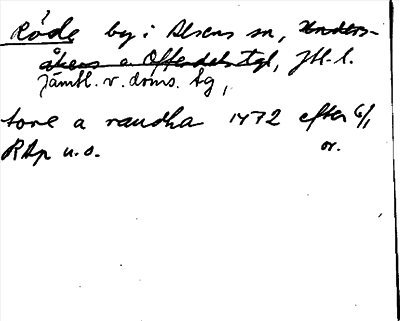 Röde by i Alsens sn, Unders-
åkers o. Offerdals tgl, Jtl. l.
Jämtl. v. doms. tg,
tore a raudha 1472 efter 6/1
RAp u.o. or.